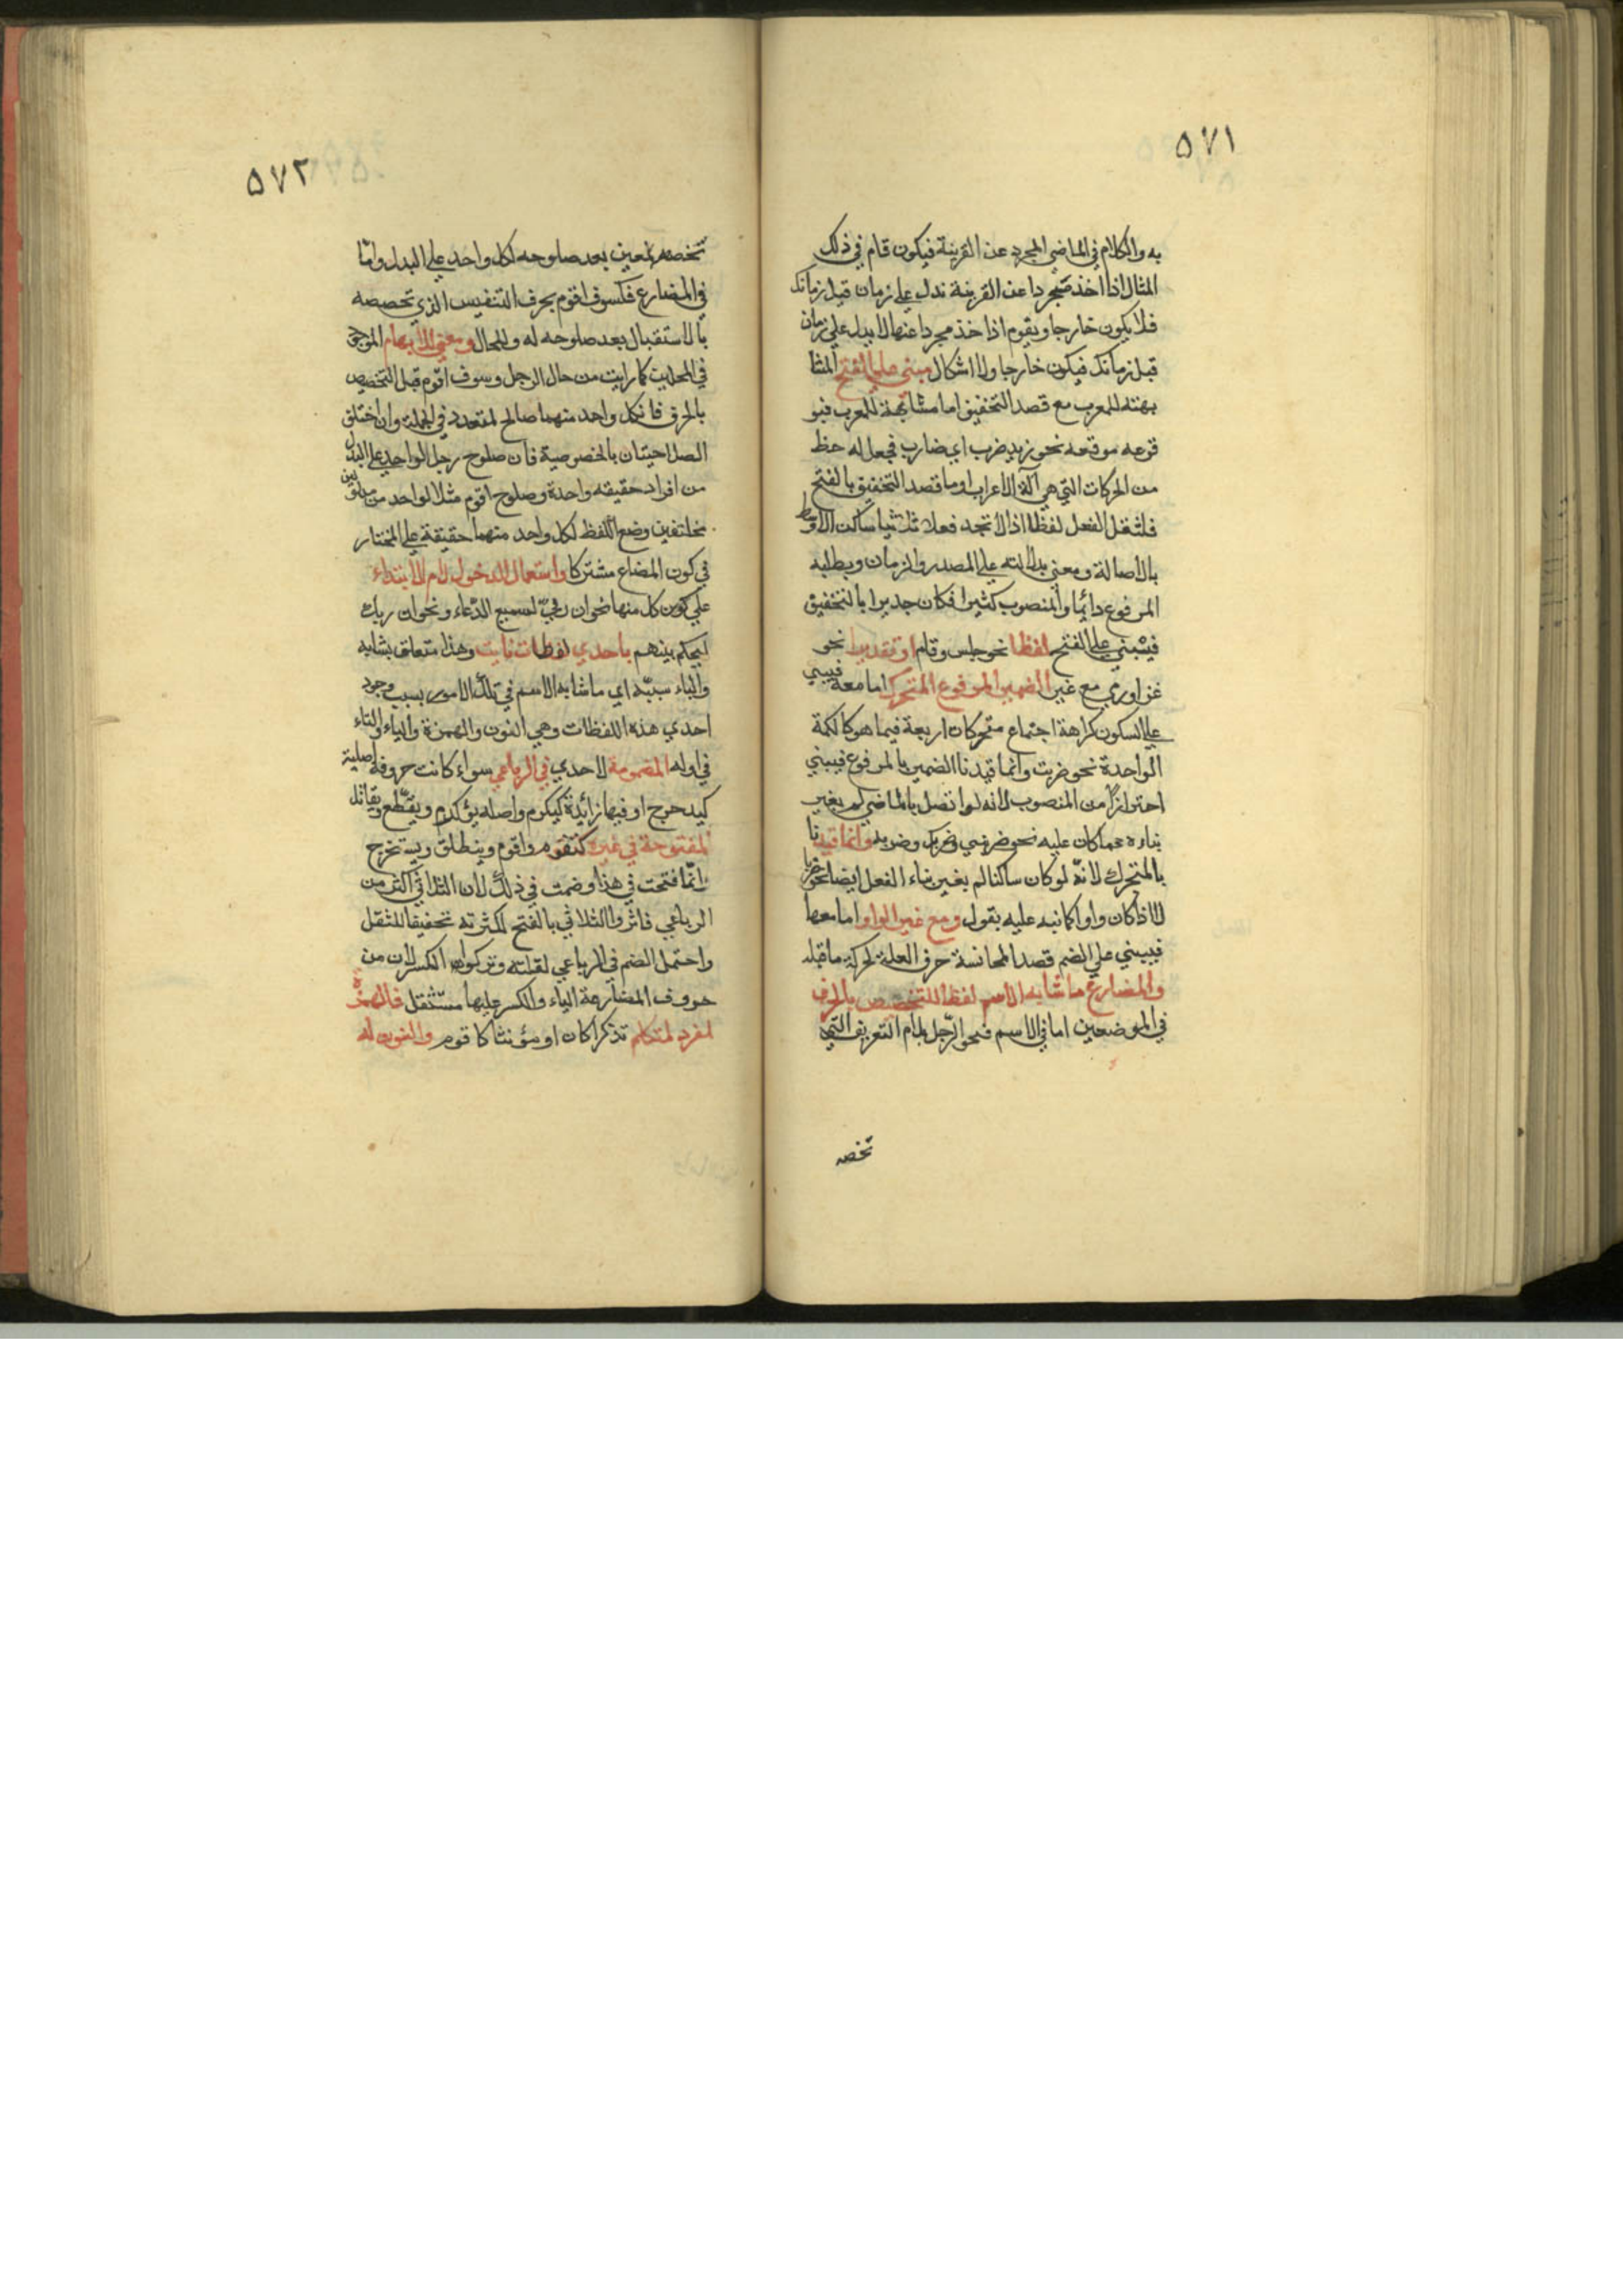 ٥٧١
به والكلام في الماضي المجرد عن القرينة فيكون قام في ذلك
المثال اذا اخذ مجردا عن القرينة تدل علي زمان قبل زمانك
فلا يكون خارجا ويقوم اذا خذ مجردا عنها لا يدل علي زمان
قبل زمانك فيكون خارجا ولا اشكال مبني علي الفتح لمشا
بهته للمعرب مع قصد التخفيف اما مشابهة للمعرب فبو
قوعه موقعه نحو زيد ضرب اي ضارب فجعل له حظ
من الحركات التي هي آلة الاعراب اوما قصد التخفيف بالفتح
فلثقل الفعل لفظا اذ لا تجد فعلا ثلاثيا ساكن الاوسط
بالاصالة ومعني بدلالته علي المصدر والزمان ويطلبه
المرفوع دائما والمنصوب كثيرا فكان جديرا بالتخفيف
فيبني علي الفتح لفظا نحو جلس وقام او تقديرا نحو
غزا ورمي مع غير الضمير المرفوع المتحرك اما معه فيبني
علي السكون كراهة اجتماع متحركات اربعة فيما هو كالكلمة
الواحدة نحو ضربت وانما قيدنا الضمير بالمرفوع فيبني
احترازاً من المنصوب لانه لو اتصل بالماضي لم يغير
بناءه عما كان عليه نحو ضربني وضربك وضربه وانما قيدنا
بالمتحرك لانه لو كان ساكنا لم يغير بناء الفعل ايضا نحو ضربا
الا اذا كان واوا كما نبه عليه بقول ومع غير الواو اما معها
فيبني علي الضم قصدا لمجانسة حرف العلة لحركة ما قبله
والمضارع ما شابه الاسم لفظا للتخصيص بالحرف
في الموضعين اما في الاسم فنحو الرّجل بلام التعريف التي
تخصه
٥٧٢
تخصه بمعين بعد صلوحه لكل واحد علي البدل وامّا
في المضارع فكسوف اقوم بحرف التنفيس الذي تخصصه
بالاستقبال بعد صلوحه له وللحال ومعني للابهام الموجود
في المحلين كما رايت من حال الرجل وسوف اقوم قبل التخصيص
بالحرف فان كل واحد منهما صالح لمتعدد في الجملة وان اختلف
الصلاحيتان بالخصوصية فان صلوح رجل الواحد علي البدل
من افراد حقيقه واحدة وصلوح اقوم مثلا لواحد من
مختلفين وضع اللفظ لكل واحد منهما حقيقة علي المختار
في كون المضاع مشتركا واستعمالا لدخول لام الابتداء
علي كون كل منها نحو ان ربّي لسميع الدّعاء ونحو ان ربك
ليحكم بينهم باحدي لفظات نايت وهذا متعلق بشابه
والباء سببّية اي ما شابه الاسم في تلك الامور بسبب وجود
احدي هذه اللفظات وهي النون والهمزة والياء والتاء
في اوله المضمومة لاحدي في الرباعي سواء كانت حروفه اصلية
كيدحرج او فيها زائدة كيكرم واصله يؤكرم ويقطّع ويقاتل
المفتوحة في غيره كنقوم واقوم وينطلق ويستخرج
وانّما فتحت في هذا وضمت في ذلك لان الثلاثي اكثر من
الرباعي فاثروا الثلاثي بالفتح لكثرته تخفيفا للثقل
واحتمل الضم في الرباعي لقلته وتركوا الكسر لان من
حروف المضارعة الياء والكسر عليها مستثقل فالهمزة
لمفرد لمتكلم تذكرا كان او مؤنثا كاقوم والنون له